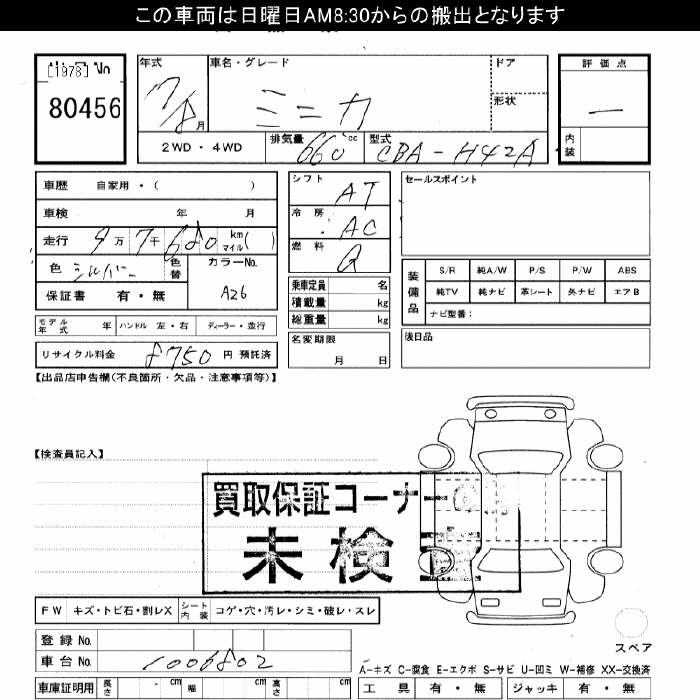 この車両は日曜日AM8:30からの搬出となります
[1978] No
80456
年式 車名・グレード ドア 評価点
7/8月 ミニカ 形状 —
2WD・4WD 排気量 660cc 型式 CBA-H42A 内装
車歴 自家用・( )
車検 年 月
走行 9万7千680 km マイル( )
色 シルバー 色替 カラーNo.
保証書 有・無 A26
モデル年式 年 ハンドル 左・右 ディーラー・並行
リサイクル料金 8750 円 預託済
シフト AT
冷房 AC
燃料 G
乗車定員 名
積載量 kg
総重量 kg
名変期限
月 日
セールスポイント
装備品 S/R 純A/W P/S P/W ABS
純TV 純ナビ 革シート 外ナビ エアB
ナビ型番:
後日品
【出品店申告欄(不良箇所・欠品・注意事項等)】
【検査員記入】
買取保証コーナー
未検
FW キズ・トビ石・割レX シート内装 コゲ・穴・汚レ・シミ・破レ・スレ
登録No.
車台No. 1006802
車庫証明用 長さ cm 幅 cm 高さ cm
スペア
A-キズ C-腐食 E-エクボ S-サビ U-凹ミ W-補修 XX-交換済
工具 有・無 ジャッキ 有・無